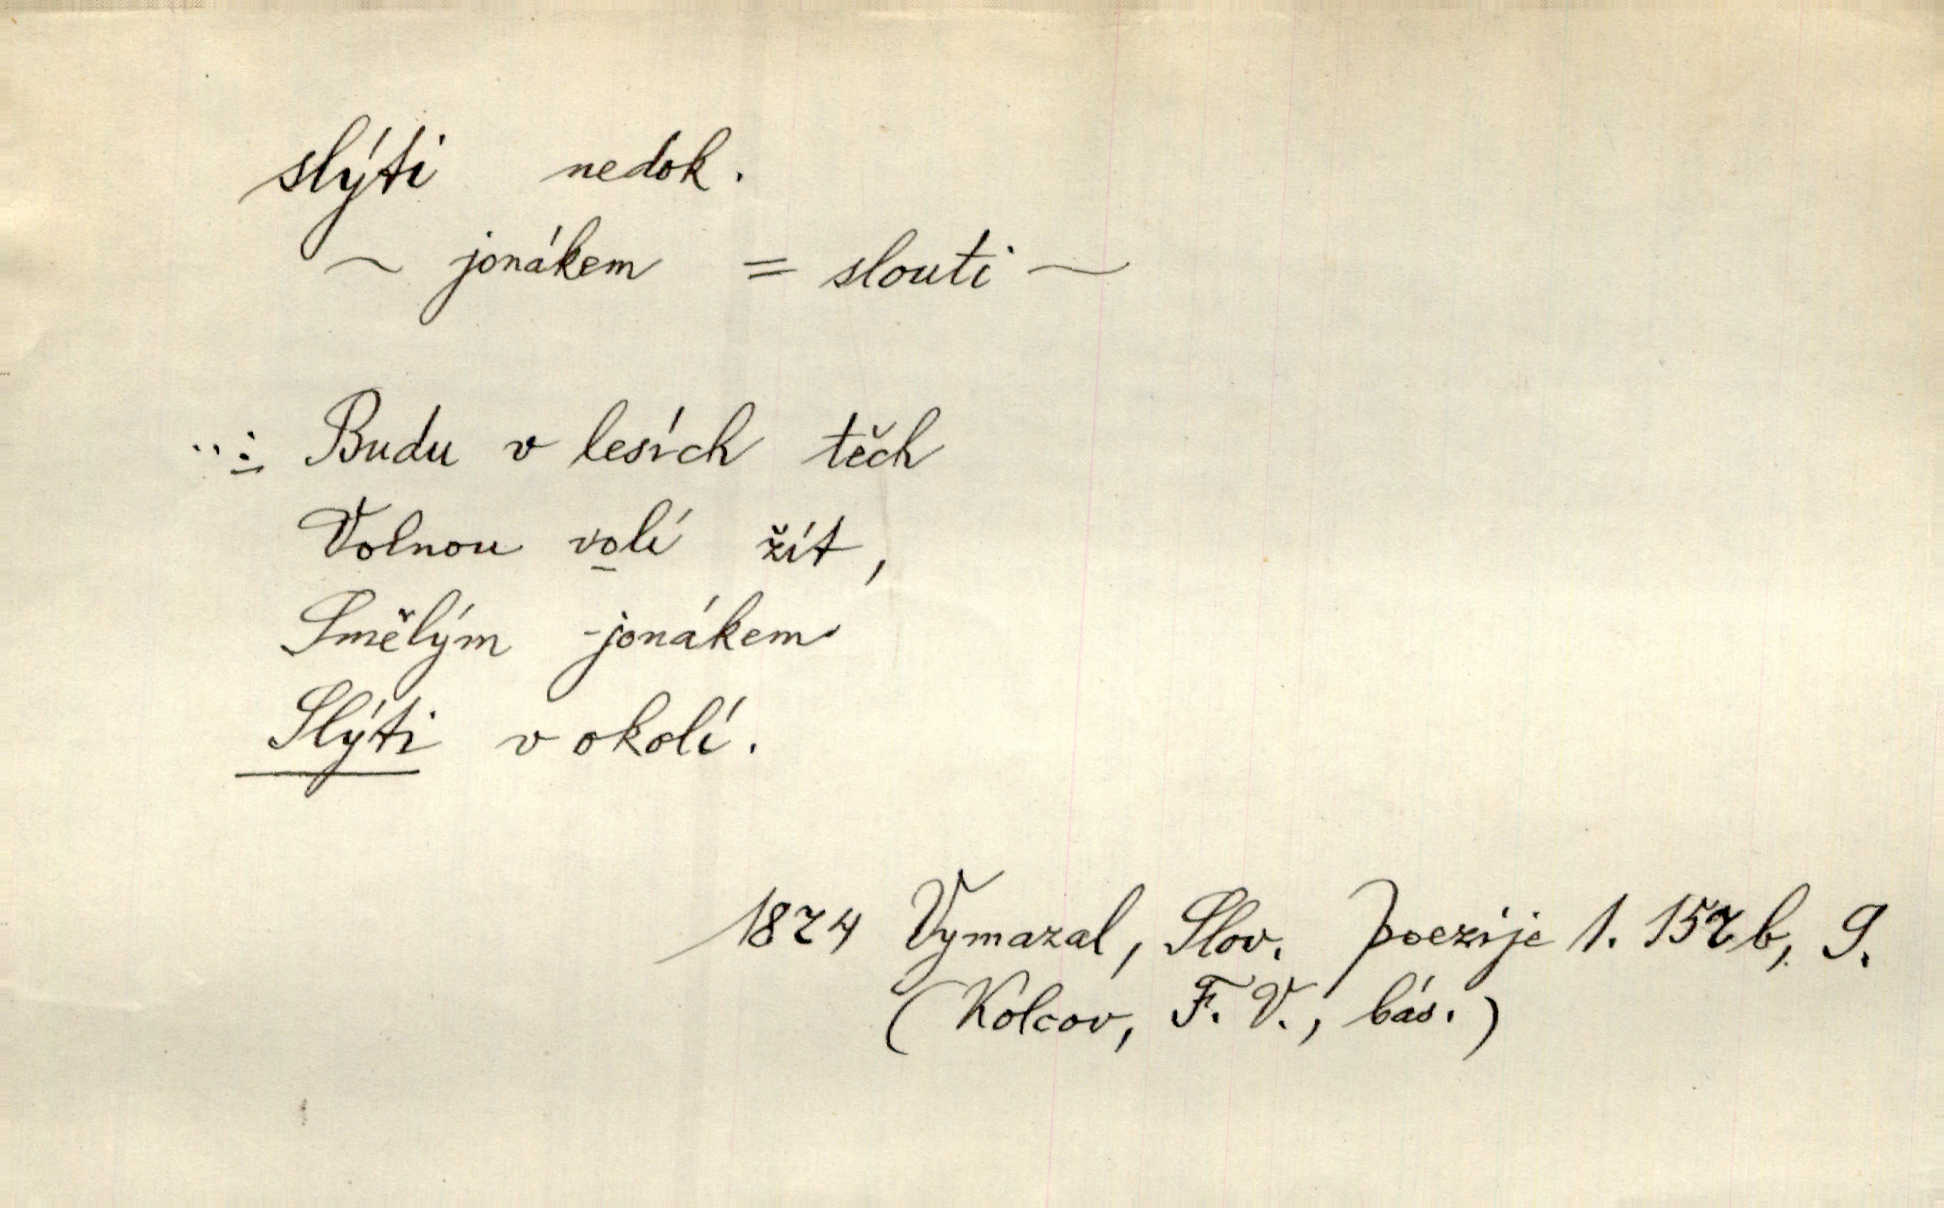 slýti nedok.
~ jonákem = slouti ~
..÷ Budu v lesích těch
Volnou volí žít,
Smělým jonákem
Slýti v okolí.
1874 Vymazal, Slov. poezije 1. 157b, 9.
(Kolcov, F. V., bás.)